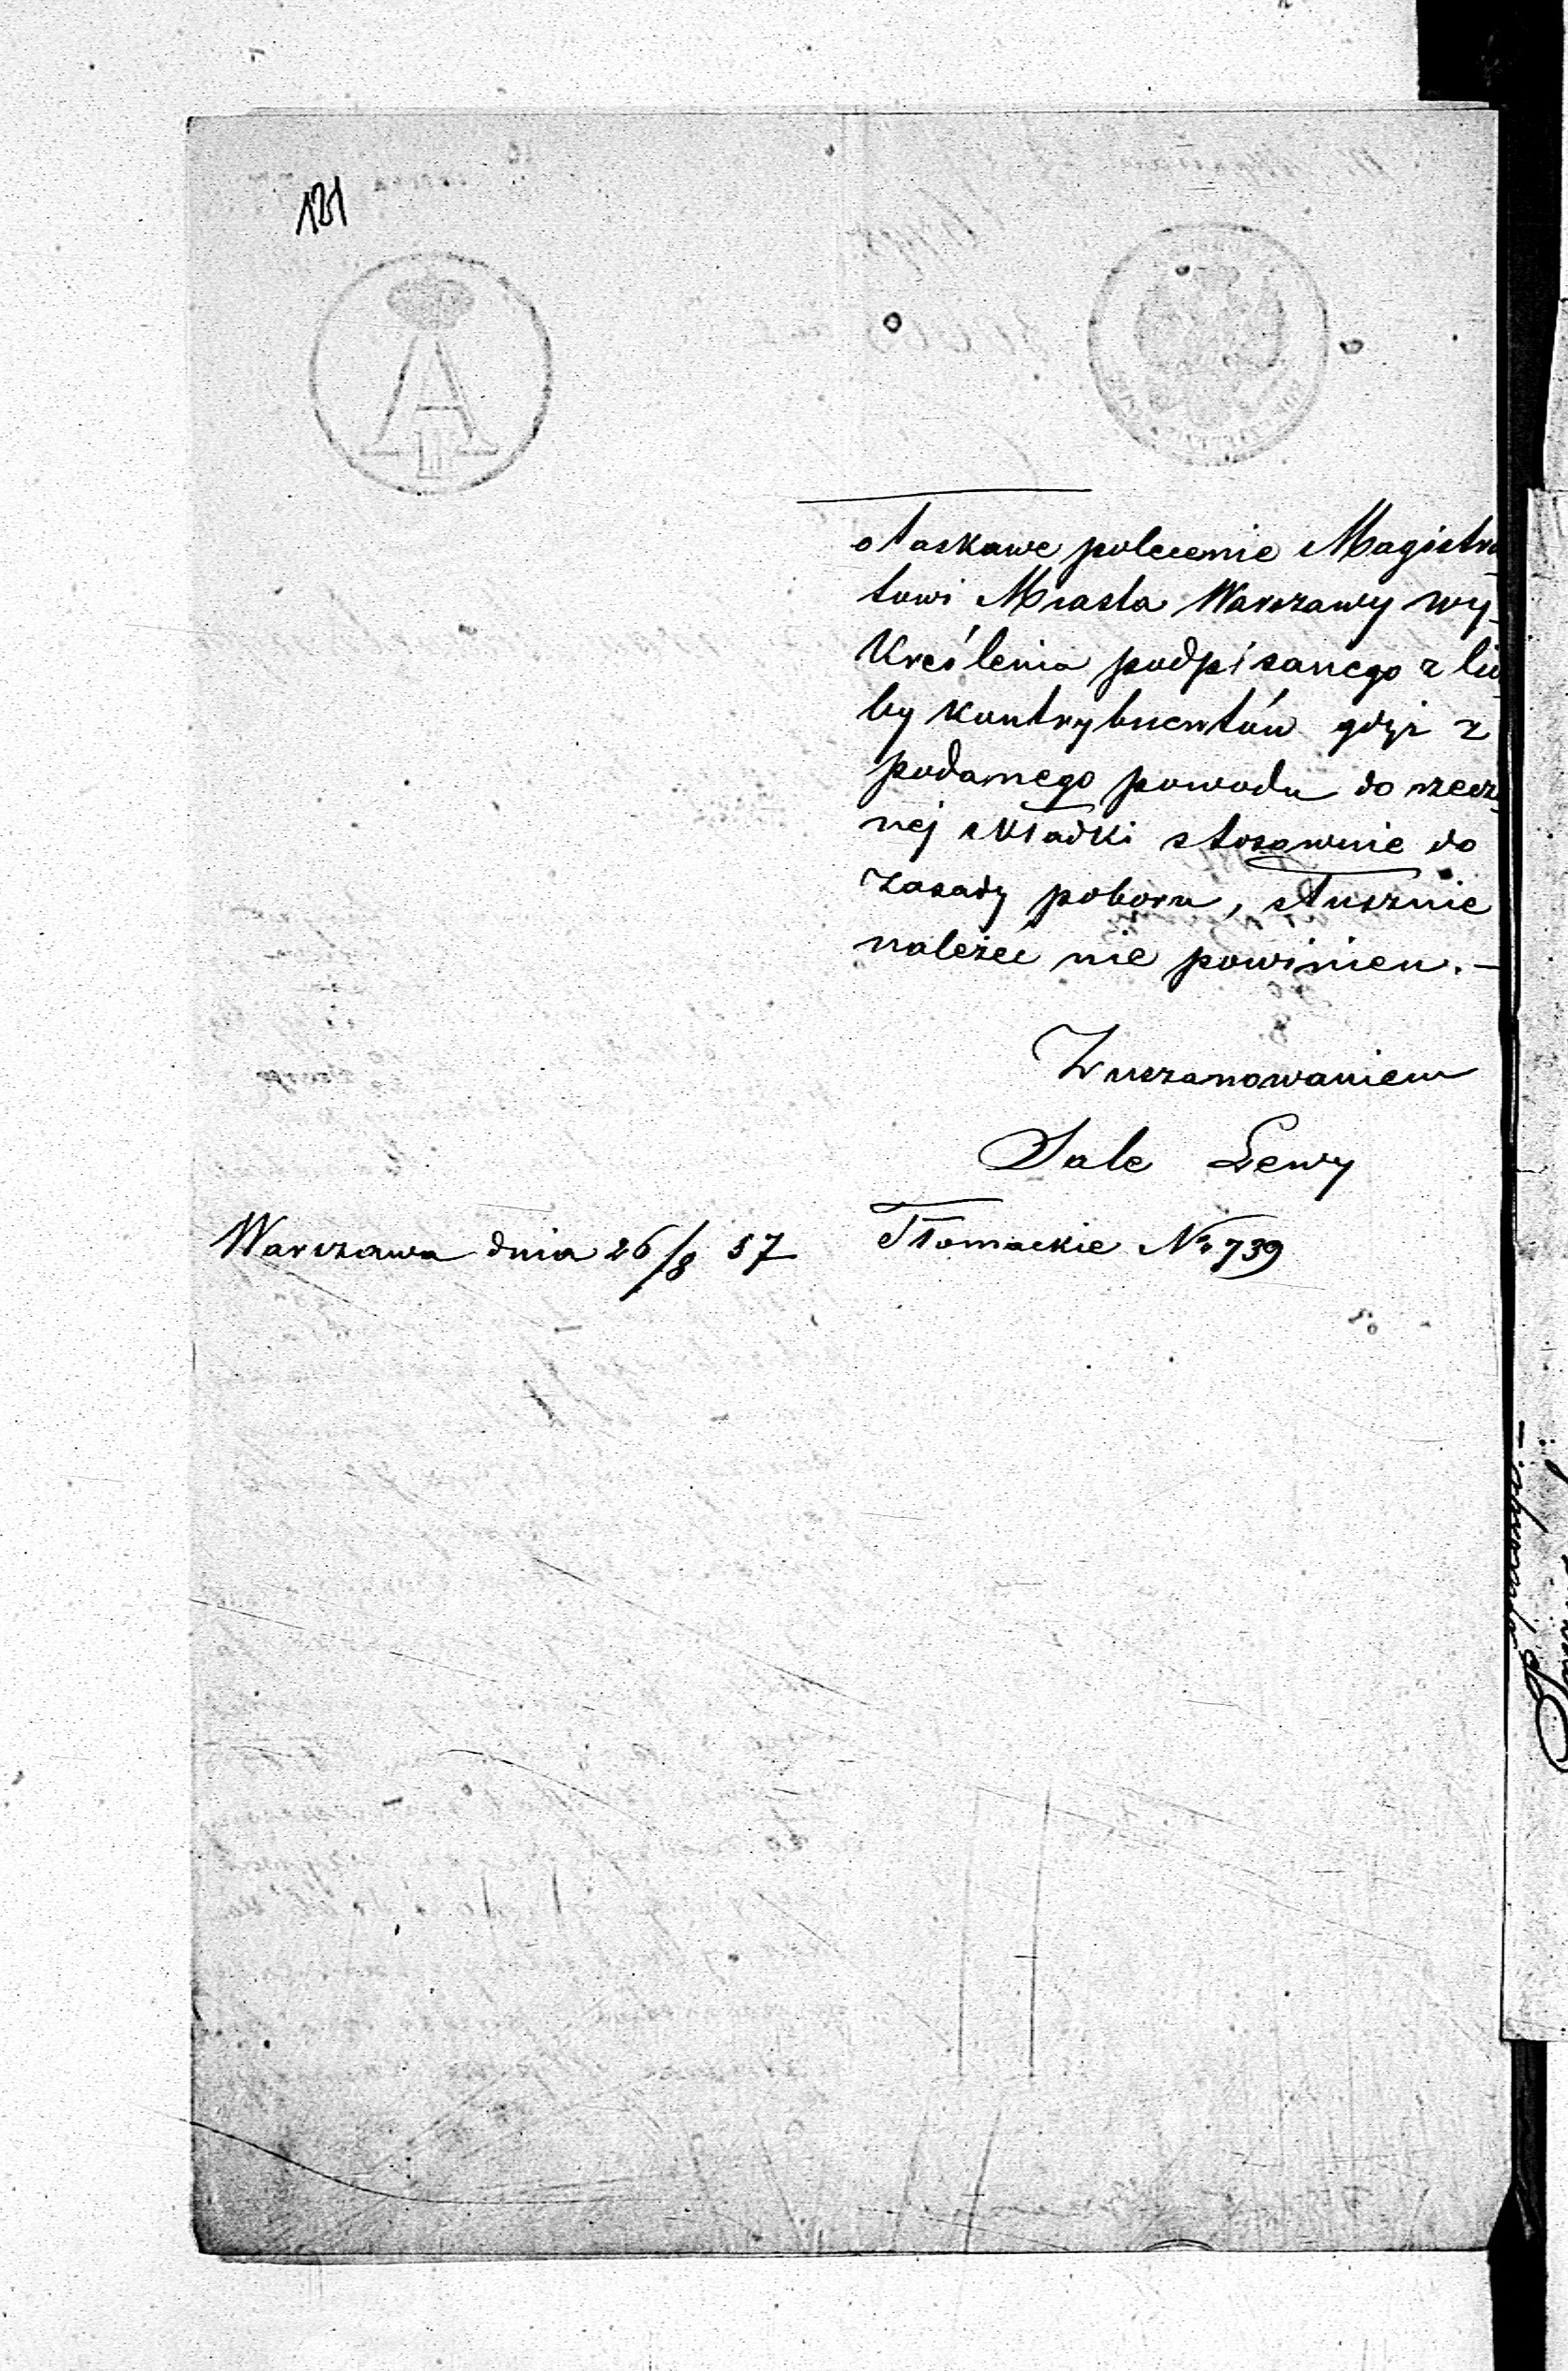 121
o łaskawe polecenie Magistra
towi Miasta Warszawy wy-
kreślenia podpisanego z lic
by kontrybuentów gdyż z
podanego powodu do rzeczo
nej składki stosownie do
zasady poboru, słusznie
należeć nie powinien. –
Z uszanowaniem
Sale Lewy
Warszawa dnia 26/8 57 Tłomackie No 739